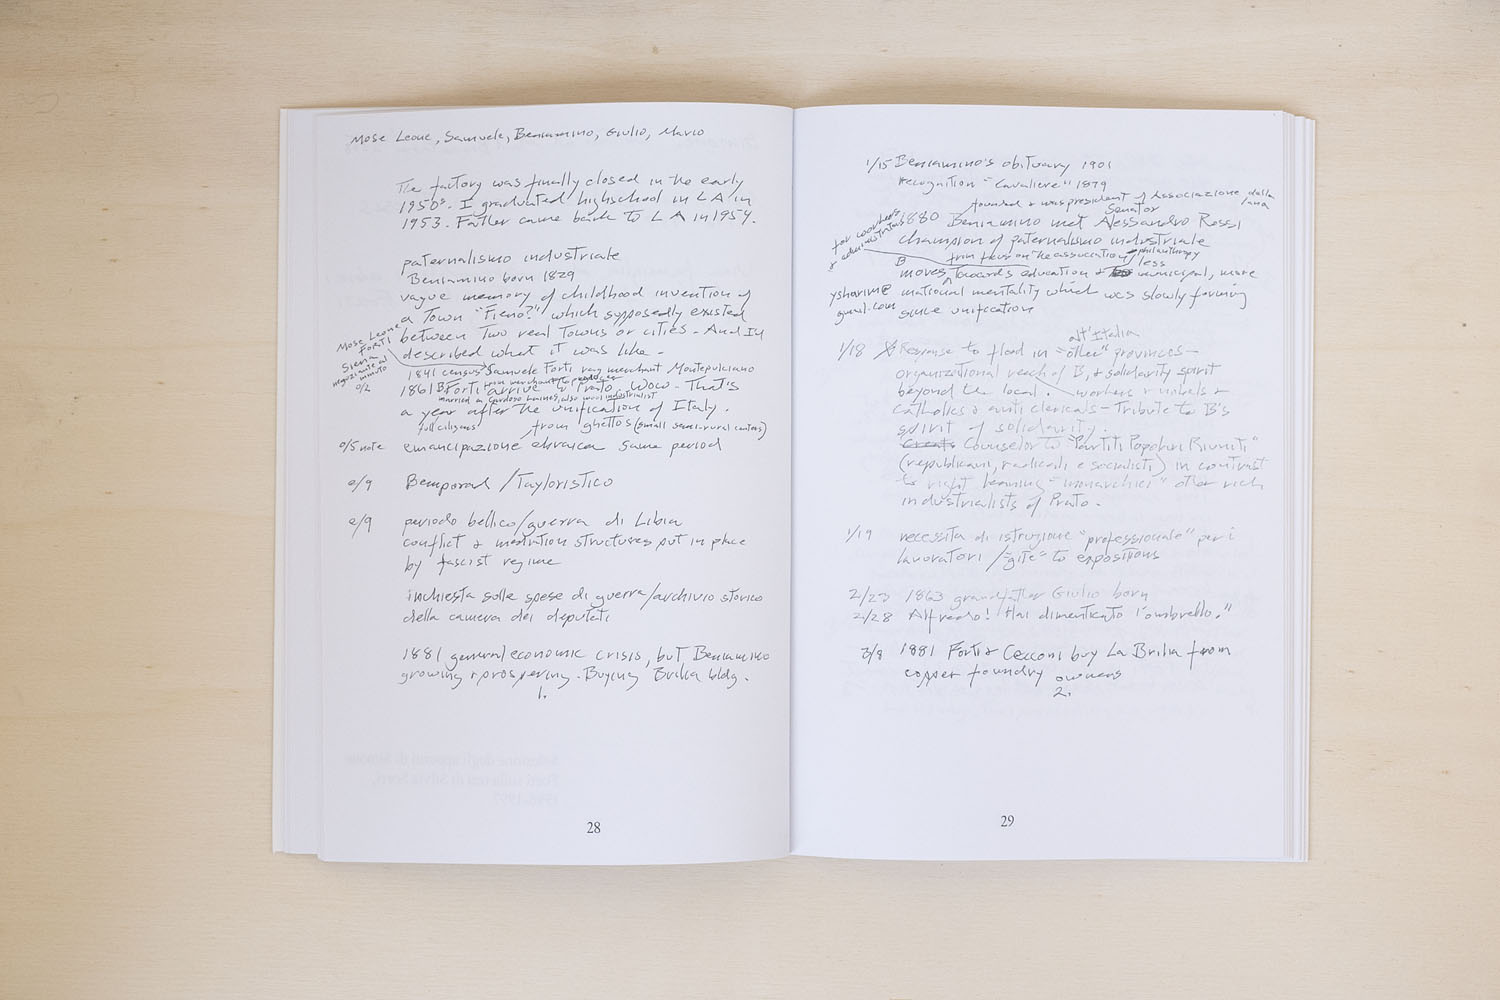 Mose Leone, Samuele, Beniamino, Giulio, Mario
The factory was finally closed in the early
1950s. I graduated highschool in LA in
1953. Father came back to LA in 1954.
paternalismo industriale
Beniamino born 1829
vague memory of childhood invention of
a Town "Fieno?" which supposedly existed
between Two real Towns or cities - And I'd
described what it was like -
Mose Leone
FORTI
Siena
negoziante al
minuto
0/2
1841 census Samuele Forti rag merchant Montepulciano
from rag merchant to producer
1861 B. Forti arrive in Prato, Wow - That's
married a Cardoso Laines, also wool industrialist
a year after the unification of Italy.
full citizens
from ghettos (small semi-rural centers)
0/5 note emancipazione ebraica same period
0/9 Bemporad / Tayloristico
0/9 periodo bellico/guerra di Libia
conflict & mediation structures put in place
by fascist regime
inchiesta sulle spese di guerra/archivio storico
della camera dei deputati
1881 general economic crisis, but Beniamino
growing & prospering. Buying Brilia bldg.
1.
28
1/15 Beniamino's obituary 1901
recognition "Cavaliere" 1879
founded & was president of Associazione dalla
lana
for workers
& administrators
Senator
1880 Beniamino met Alessandro Rossi
champion of paternalismo industriale
B from focus on the association of philanthropy
less
moves towards education & municipal, more
ysharim@
gmail.com
national mentality which was slowly forming
since unification
all'Italia
1/18 Response to flood in "other" provinces -
organizational reach of B, & solidarity spirit
beyond the local. workers &
Catholics & anti clericals - Tribute to B's
spirit of solidarity.
Counselor to "Partiti Popolari Riuniti"
(republicani, radicali e socialisti) in contrast
to right leaning "monarchici" other rich
industrialists of Prato.
1/19 necessita di istruzione "professionale" per i
lavoratori / "gite" to expositions
2/23 1863 grandfather Giulio born
2/28 Alfredo! Hai dimenticato l'ombrello."
3/8 1881 Forti & Cecconi buy La Brilia from
copper foundry owners
2.
29